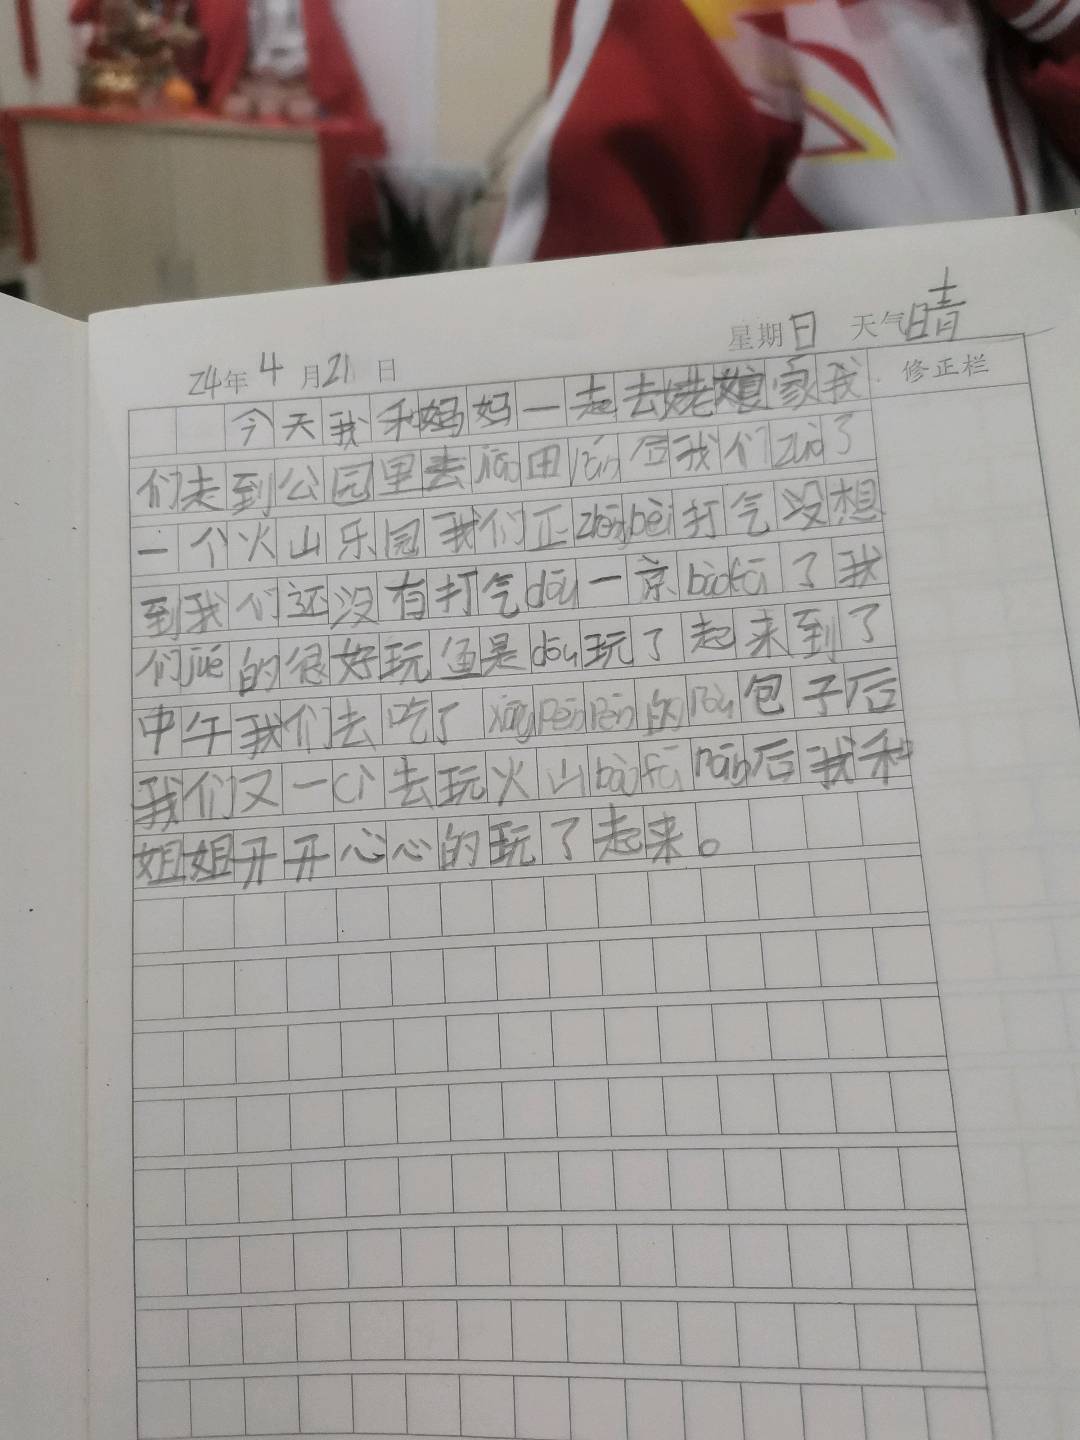 24年4月21日 星期日 天气晴
修正栏
今天我和妈妈一起去姥娘家我
们走到公园里去 田 后我们zuò了
一个火山乐园我们正zhěngbèi打气没想
到我们还没有打气dōu一京bàofā了我
们jué的很好玩鱼是dōu玩了起来到了
中午我们去吃了xiāngpēnpēn的ròu包子后
我们又一cì去玩火山bàofā rán后我和
姐姐开开心心的玩了起来。